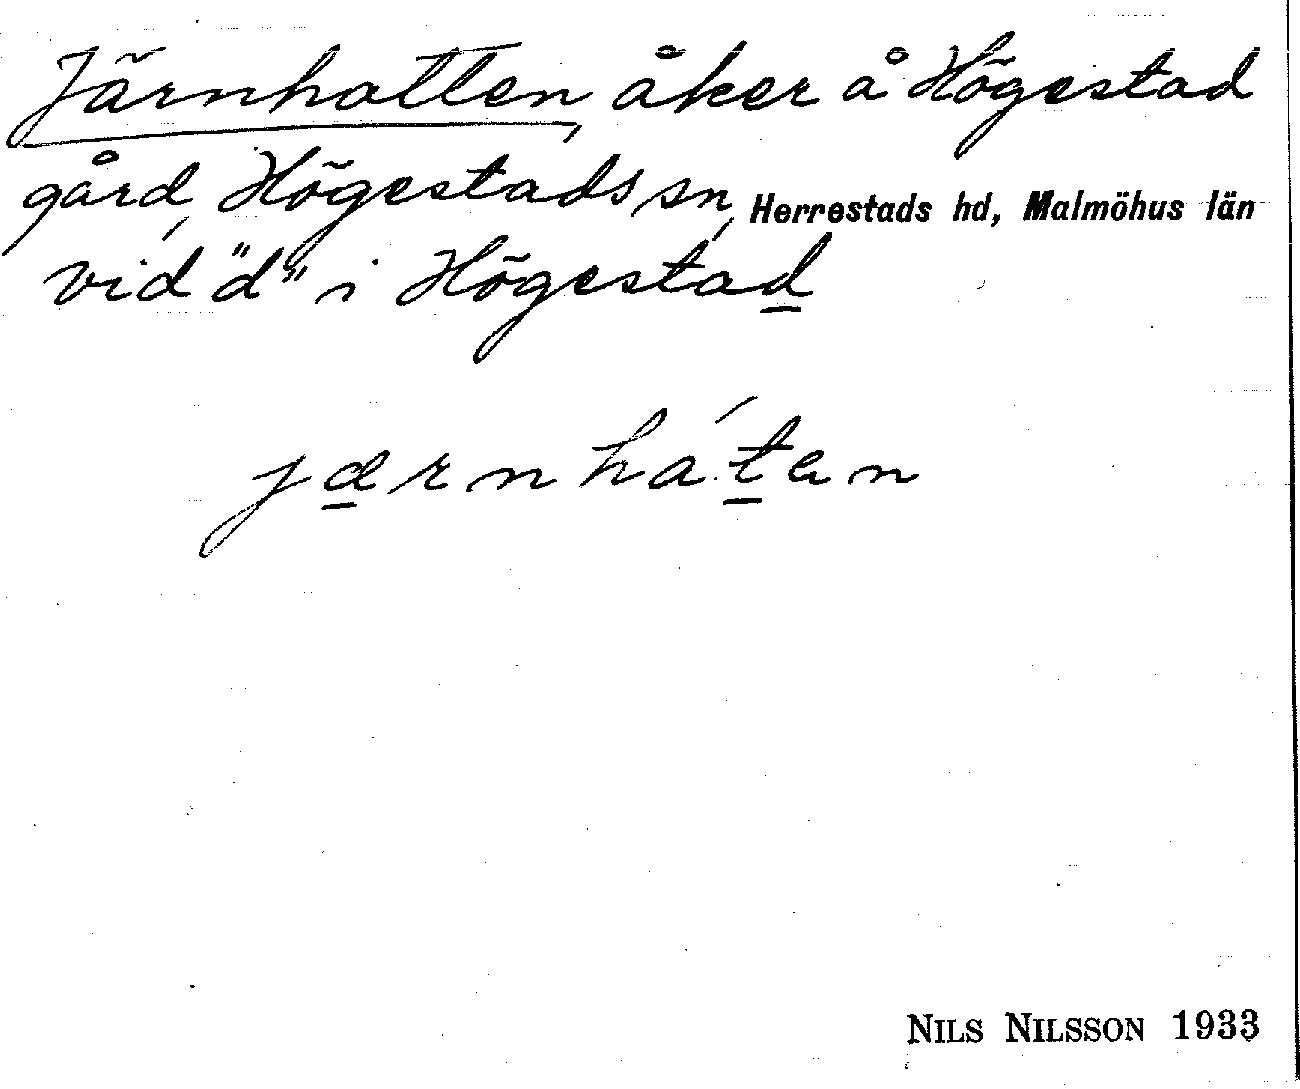 Järnhatten, åker å Högestad
gård, Högestads sn, Herrestads hd, Malmöhus län
vid "d" i Högestad
jærnháten
NILS NILSSON 1933